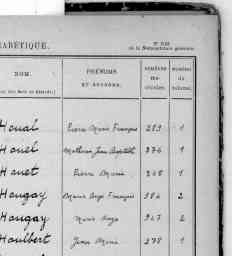 ABÉTIQUE.
de la Nomenclature générale.
NOM. PRÉNOMS ET SURNOMS. NUMÉROS MATRICULES. NUMÉRO du volume.
Houal Pierre Marie François 289 1
Houel Mathurin Jean Baptiste 376 1
Houet Pierre Marie 268 1
Hougay Marie Ange François 984 2
Hougay Marie Ange 947 2
Houlbert Jean Marie 278 1